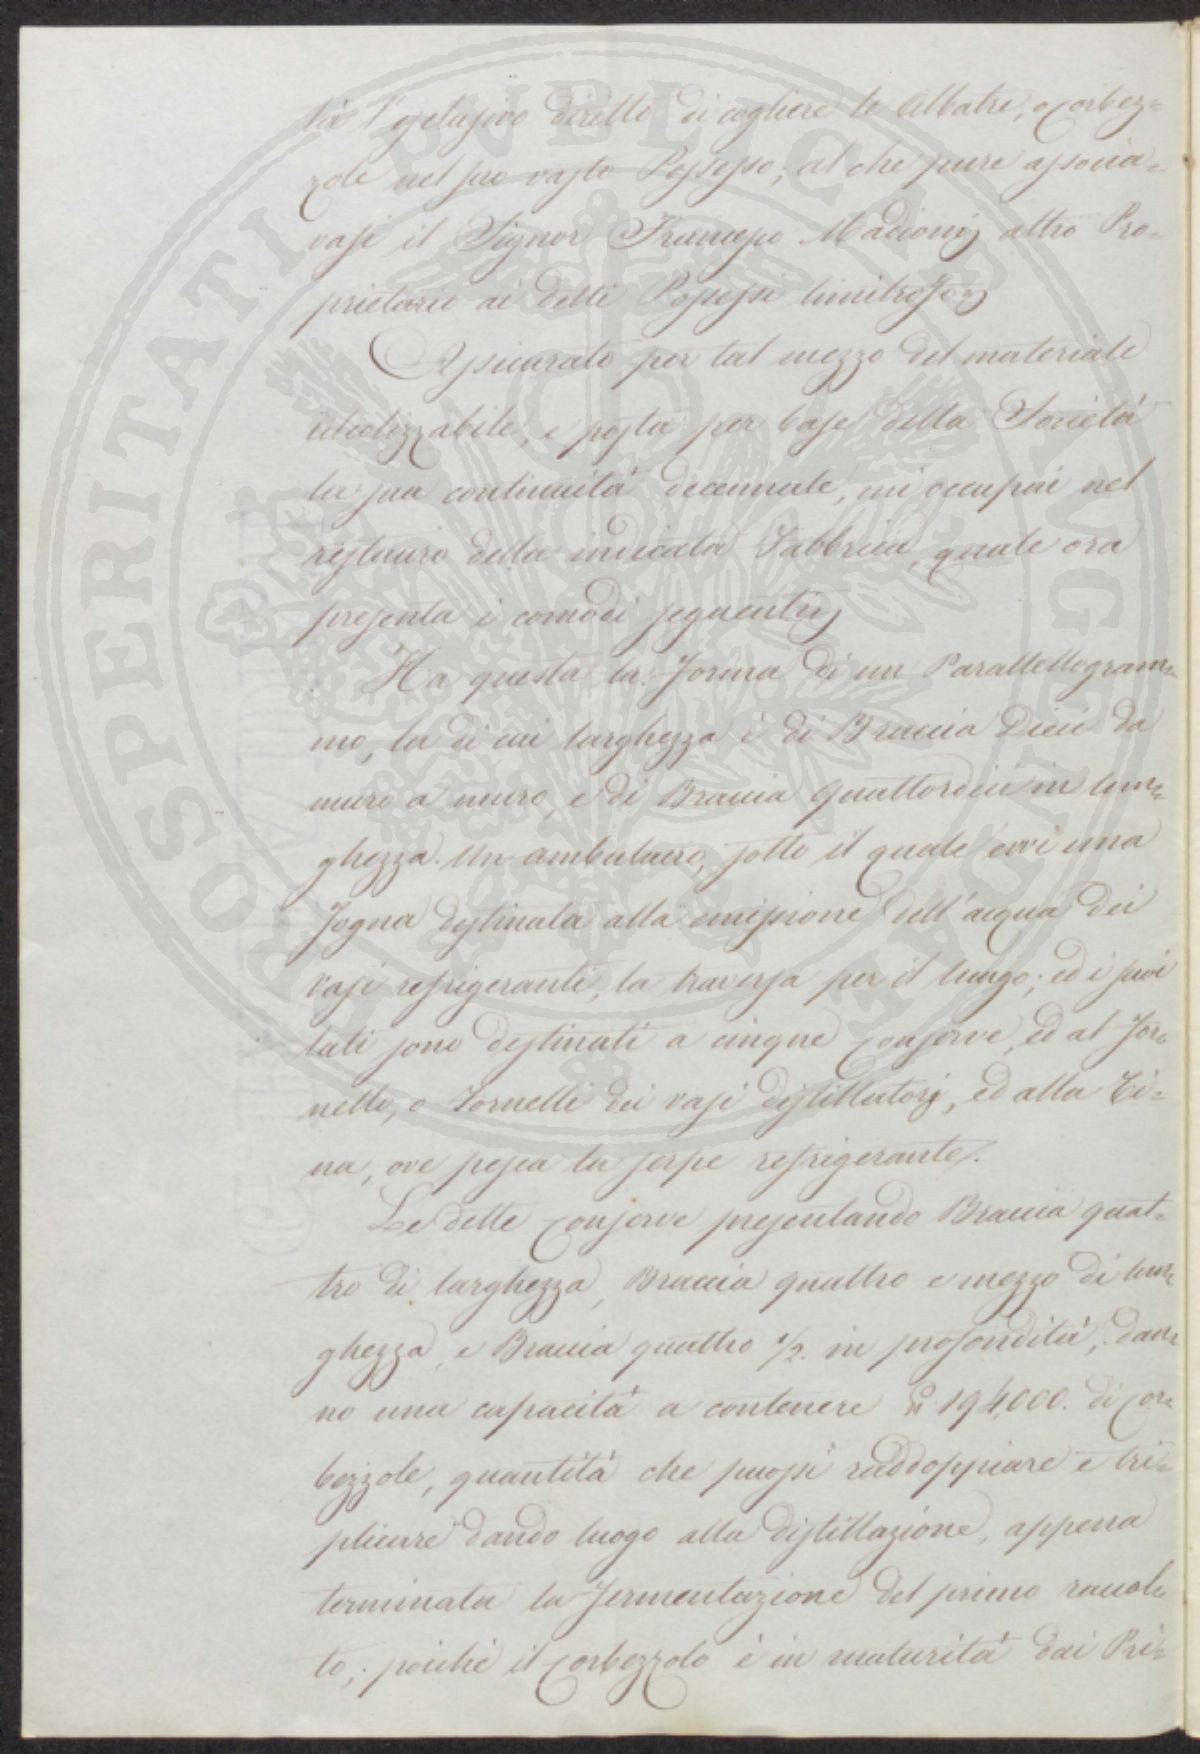 tà l'esclusivo diritto di cogliere le Albatre, o Corbez=
zole nel suo vasto Possesso; al che pure associa=
vasi il Signor Francesco Madioni altro Pro=
prietario ai detti Possessi limitrofo
Assicurato per tal mezzo del materiale
alcolizzabile, e posta per base della Società
la sua continuità decennale, mi occupai nel
restauro della indicata Fabbrica, quale ora
presenta i comodi seguenti
Ha questa la Forma di un Parallellogram=
mo, la di cui larghezza è di Braccia Dieci da
muro a muro, e di Braccia Quattordici in lun=
ghezza. Un ambulacro, sotto il quale evvi una
Fogna destinata alla emissione dell'acqua dei
Vasi refrigeranti, la traversa per il lungo; ed i suoi
lati sono destinati a cinque Conserve, ed al For=
nello, o Fornelli dei vasi distillatorj, ed alla Ti=
na, ove pesca la serpe refrigerante.
Le dette Conserve presentando Braccia quat=
tro di larghezza, Braccia quattro e mezzo di lun=
ghezza, e Braccia quattro 1/2. in profondità, dan=
no una capacità a contenere 194,000. di Cor=
bezzole, quantità che puossi raddoppiare e tri=
plicare dando luogo alla distillazione, appena
terminata la Fermentazione del primo raccol=
to; poichè il Corbezzolo è in maturità dai Pri=
PROSPERITATI PUBLICAE AUGENDAE